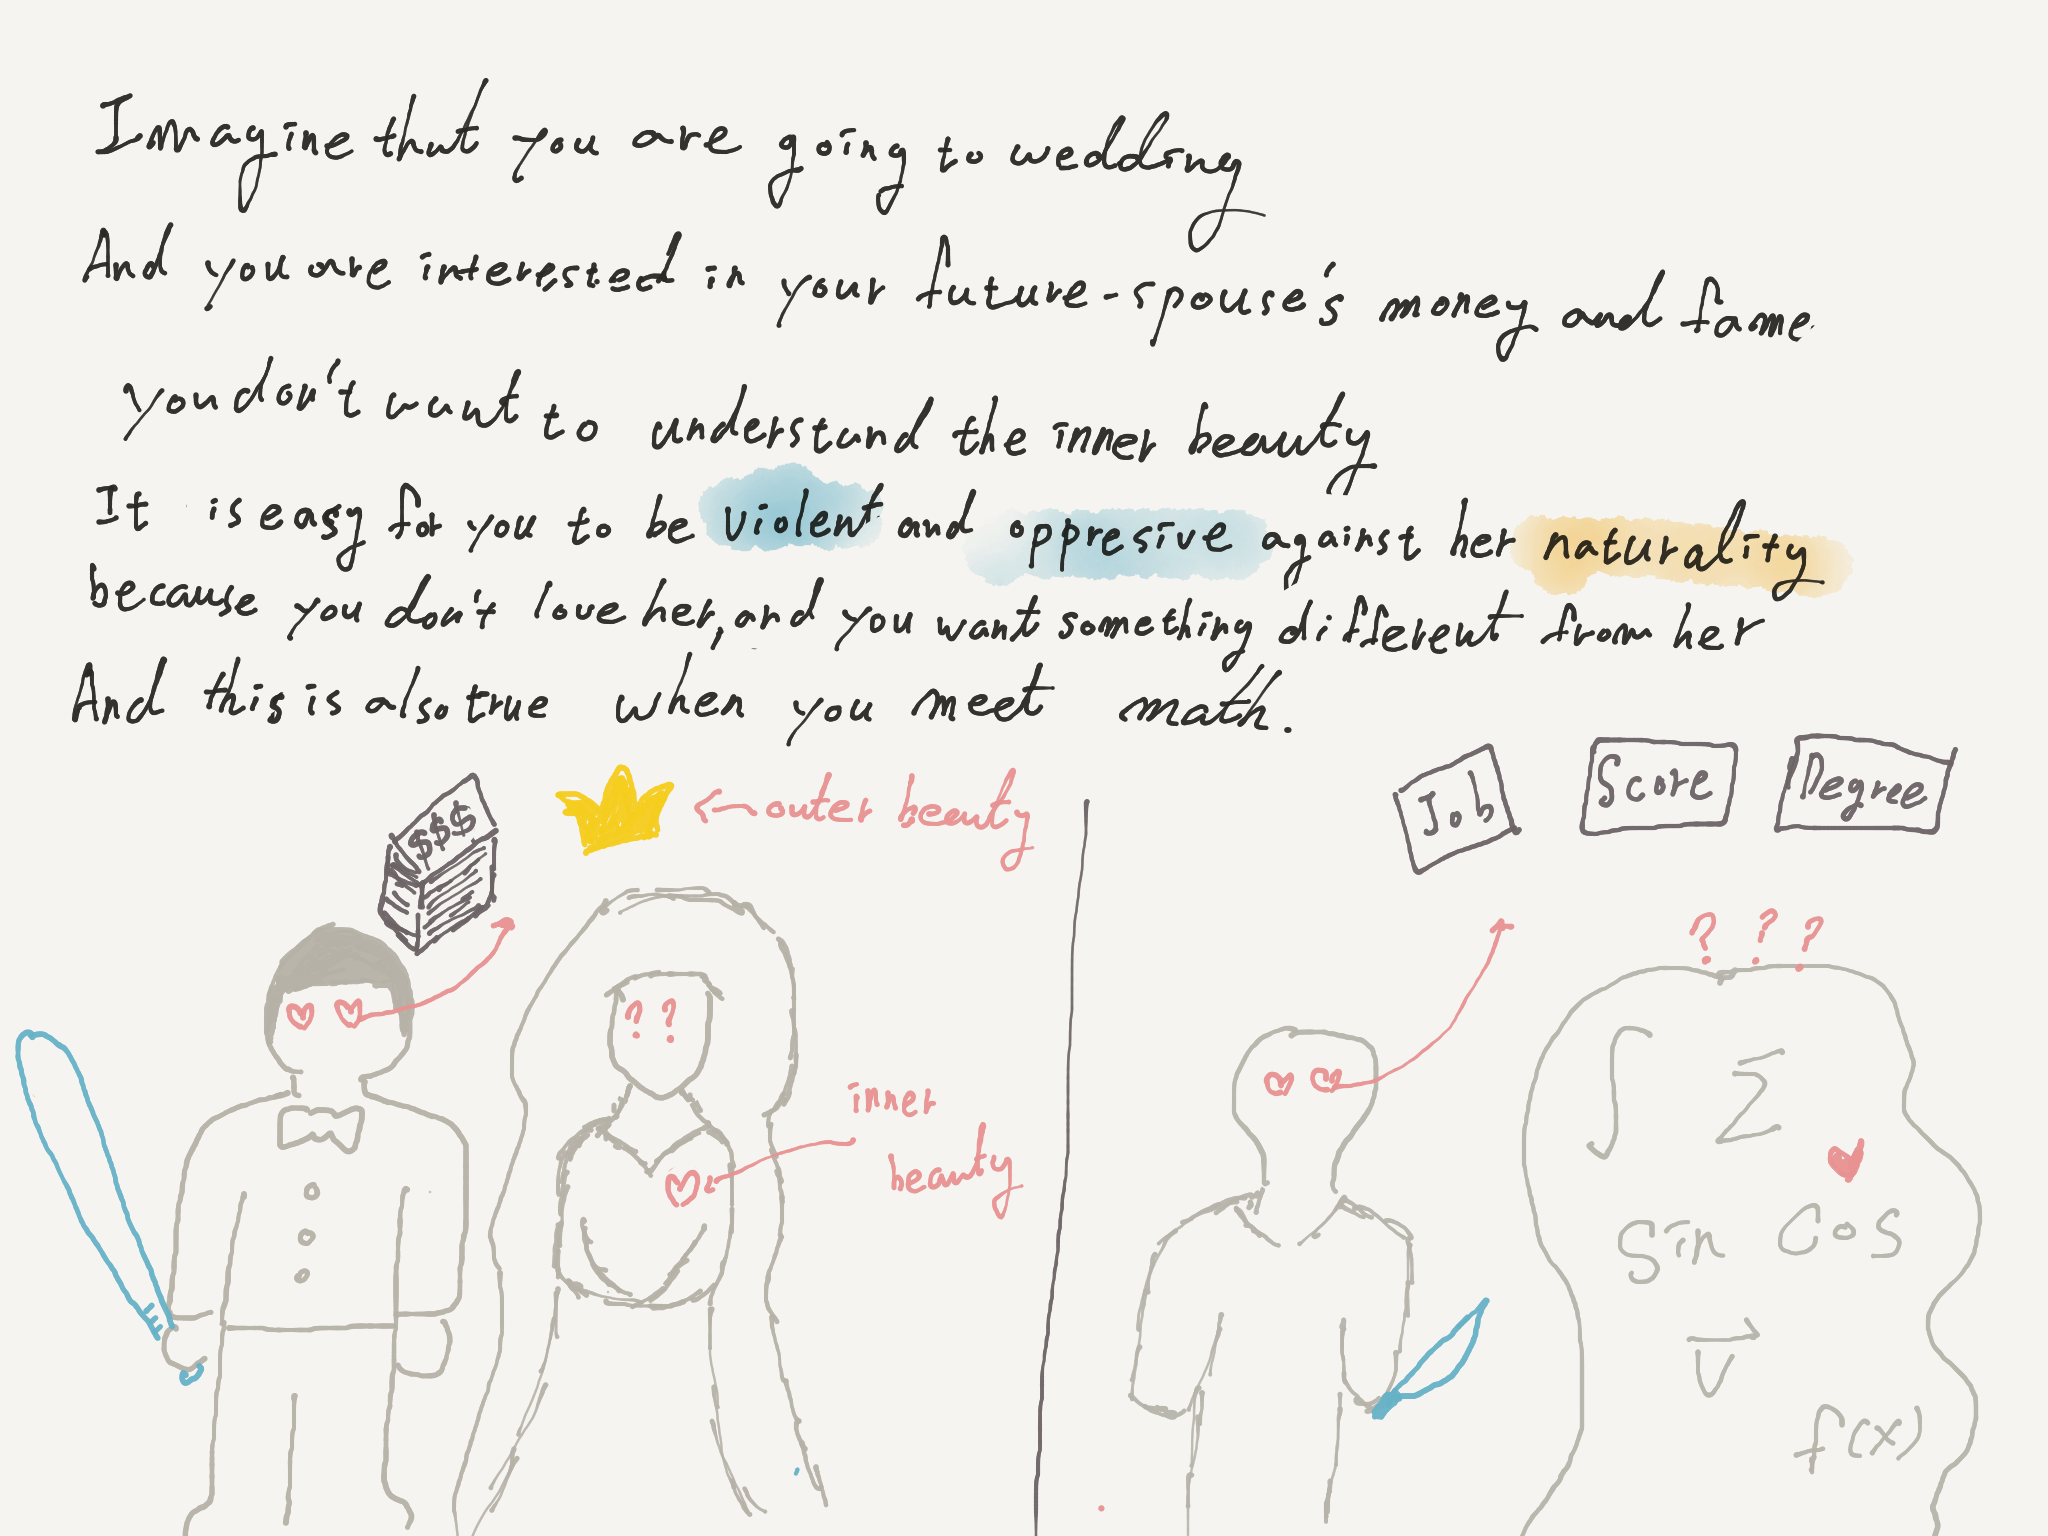 Imagine that you are going to wedding
And you are interested in your future-spouse's money and fame
you don't want to understand the inner beauty
It is easy for you to be violent and oppresive against her naturality
because you don't love her, and you want something different from her
And this is also true when you meet math.
$$$
outer beauty
Job
Score
Degree
? ?
inner
beauty
? ? ?
∫ Σ
Sin Cos
→
V
f(x)